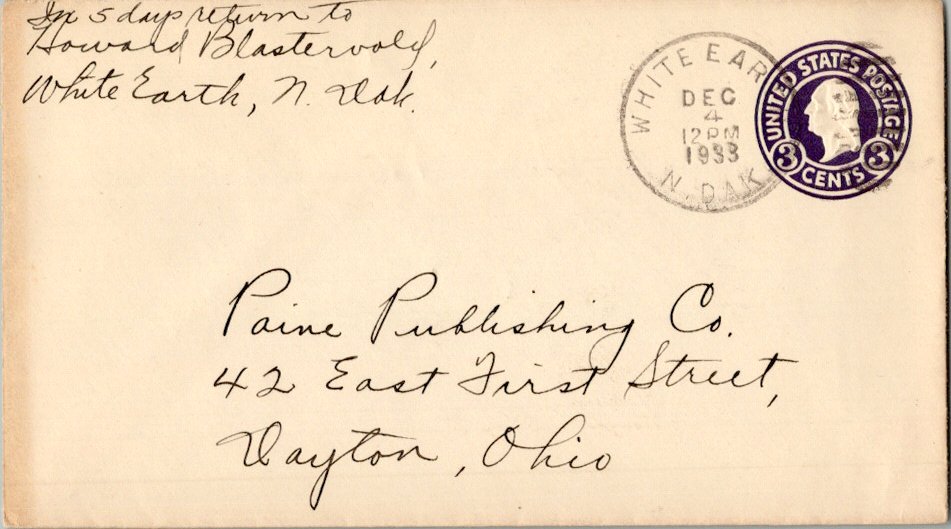 In 5 days return to
Howard Blastervold,
White Earth, N. Dak.
WHITE EAR
DEC
4
12 PM
1933
N. DAK
UNITED STATES POSTAGE
3 CENTS 3
Paine Publishing Co.
42 East First Street,
Dayton, Ohio